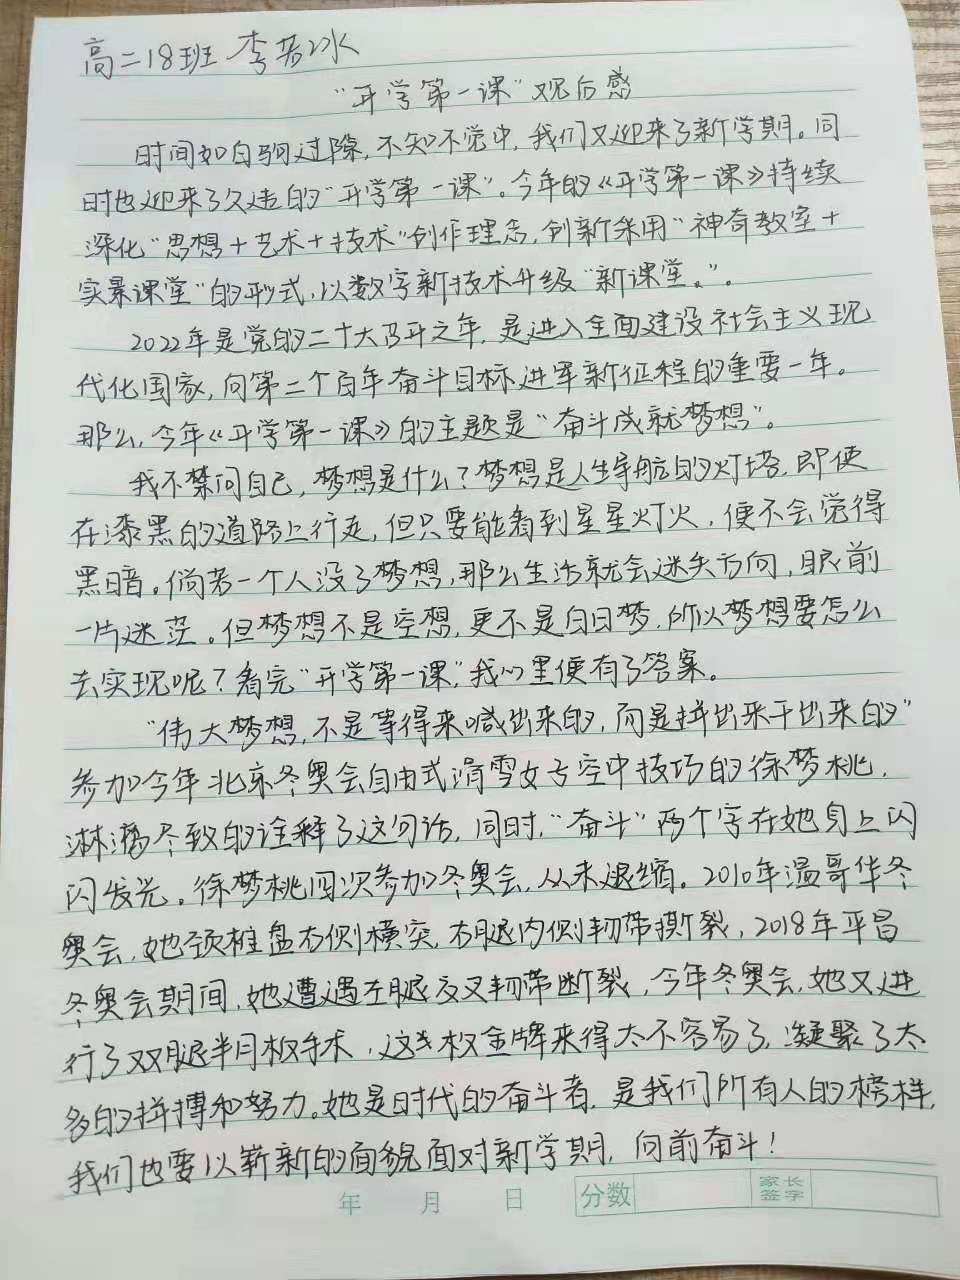 高二18班 李若冰
“开学第一课”观后感
时间如白驹过隙,不知不觉中,我们又迎来了新学期。同
时也迎来了久违的“开学第一课”。今年的《开学第一课》持续
深化“思想+艺术+技术”创作理念,创新采用“神奇教室+
实景课堂”的形式,以数字新技术升级“新课堂。”。
2022年是党的二十大召开之年,是进入全面建设社会主义现
代化国家,向第二个百年奋斗目标进军新征程的重要一年。
那么,今年《开学第一课》的主题是“奋斗成就梦想”。
我不禁问自己,梦想是什么?梦想是人生导航的灯塔,即使
在漆黑的道路上行走,但只要能看到星星灯火,便不会觉得
黑暗。倘若一个人没了梦想,那么生活就会迷失方向,眼前
一片迷茫。但梦想不是空想,更不是白日梦,所以梦想要怎么
去实现呢?看完“开学第一课”,我心里便有了答案。
“伟大梦想,不是等得来喊出来的,而是拼出来干出来的”
参加今年北京冬奥会自由式滑雪女子空中技巧的徐梦桃,
淋漓尽致的诠释了这句话,同时,“奋斗”两个字在她身上闪
闪发光。徐梦桃四次参加冬奥会,从未退缩。2010年温哥华冬
奥会,她颈椎盘右侧横突,右腿内侧韧带撕裂,2018年平昌
冬奥会期间,她遭遇左腿交叉韧带断裂,今年冬奥会,她又进
行了双腿半月板手术,这枚金牌来得太不容易了,凝聚了太
多的拼搏和努力。她是时代的奋斗者,是我们所有人的榜样,
我们也要以崭新的面貌面对新学期,向前奋斗!
年 月 日 分数 家长签字